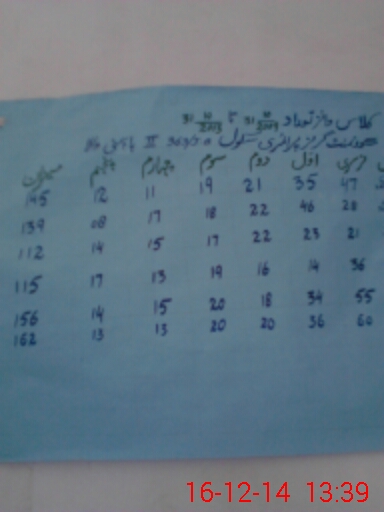 کلاس وائز تعداد 31 10 2009 تا 31 10 2013
گورنمنٹ گرلز پرائمری سکول II
نرسری اول دوم سوم چہارم پنجم میزان
47 35 21 19 11 12 145
28 46 22 18 17 08 139
21 23 22 17 15 14 112
36 14 16 19 13 17 115
55 34 18 20 15 14 156
60 36 20 20 13 13 162
16-12-14 13:39